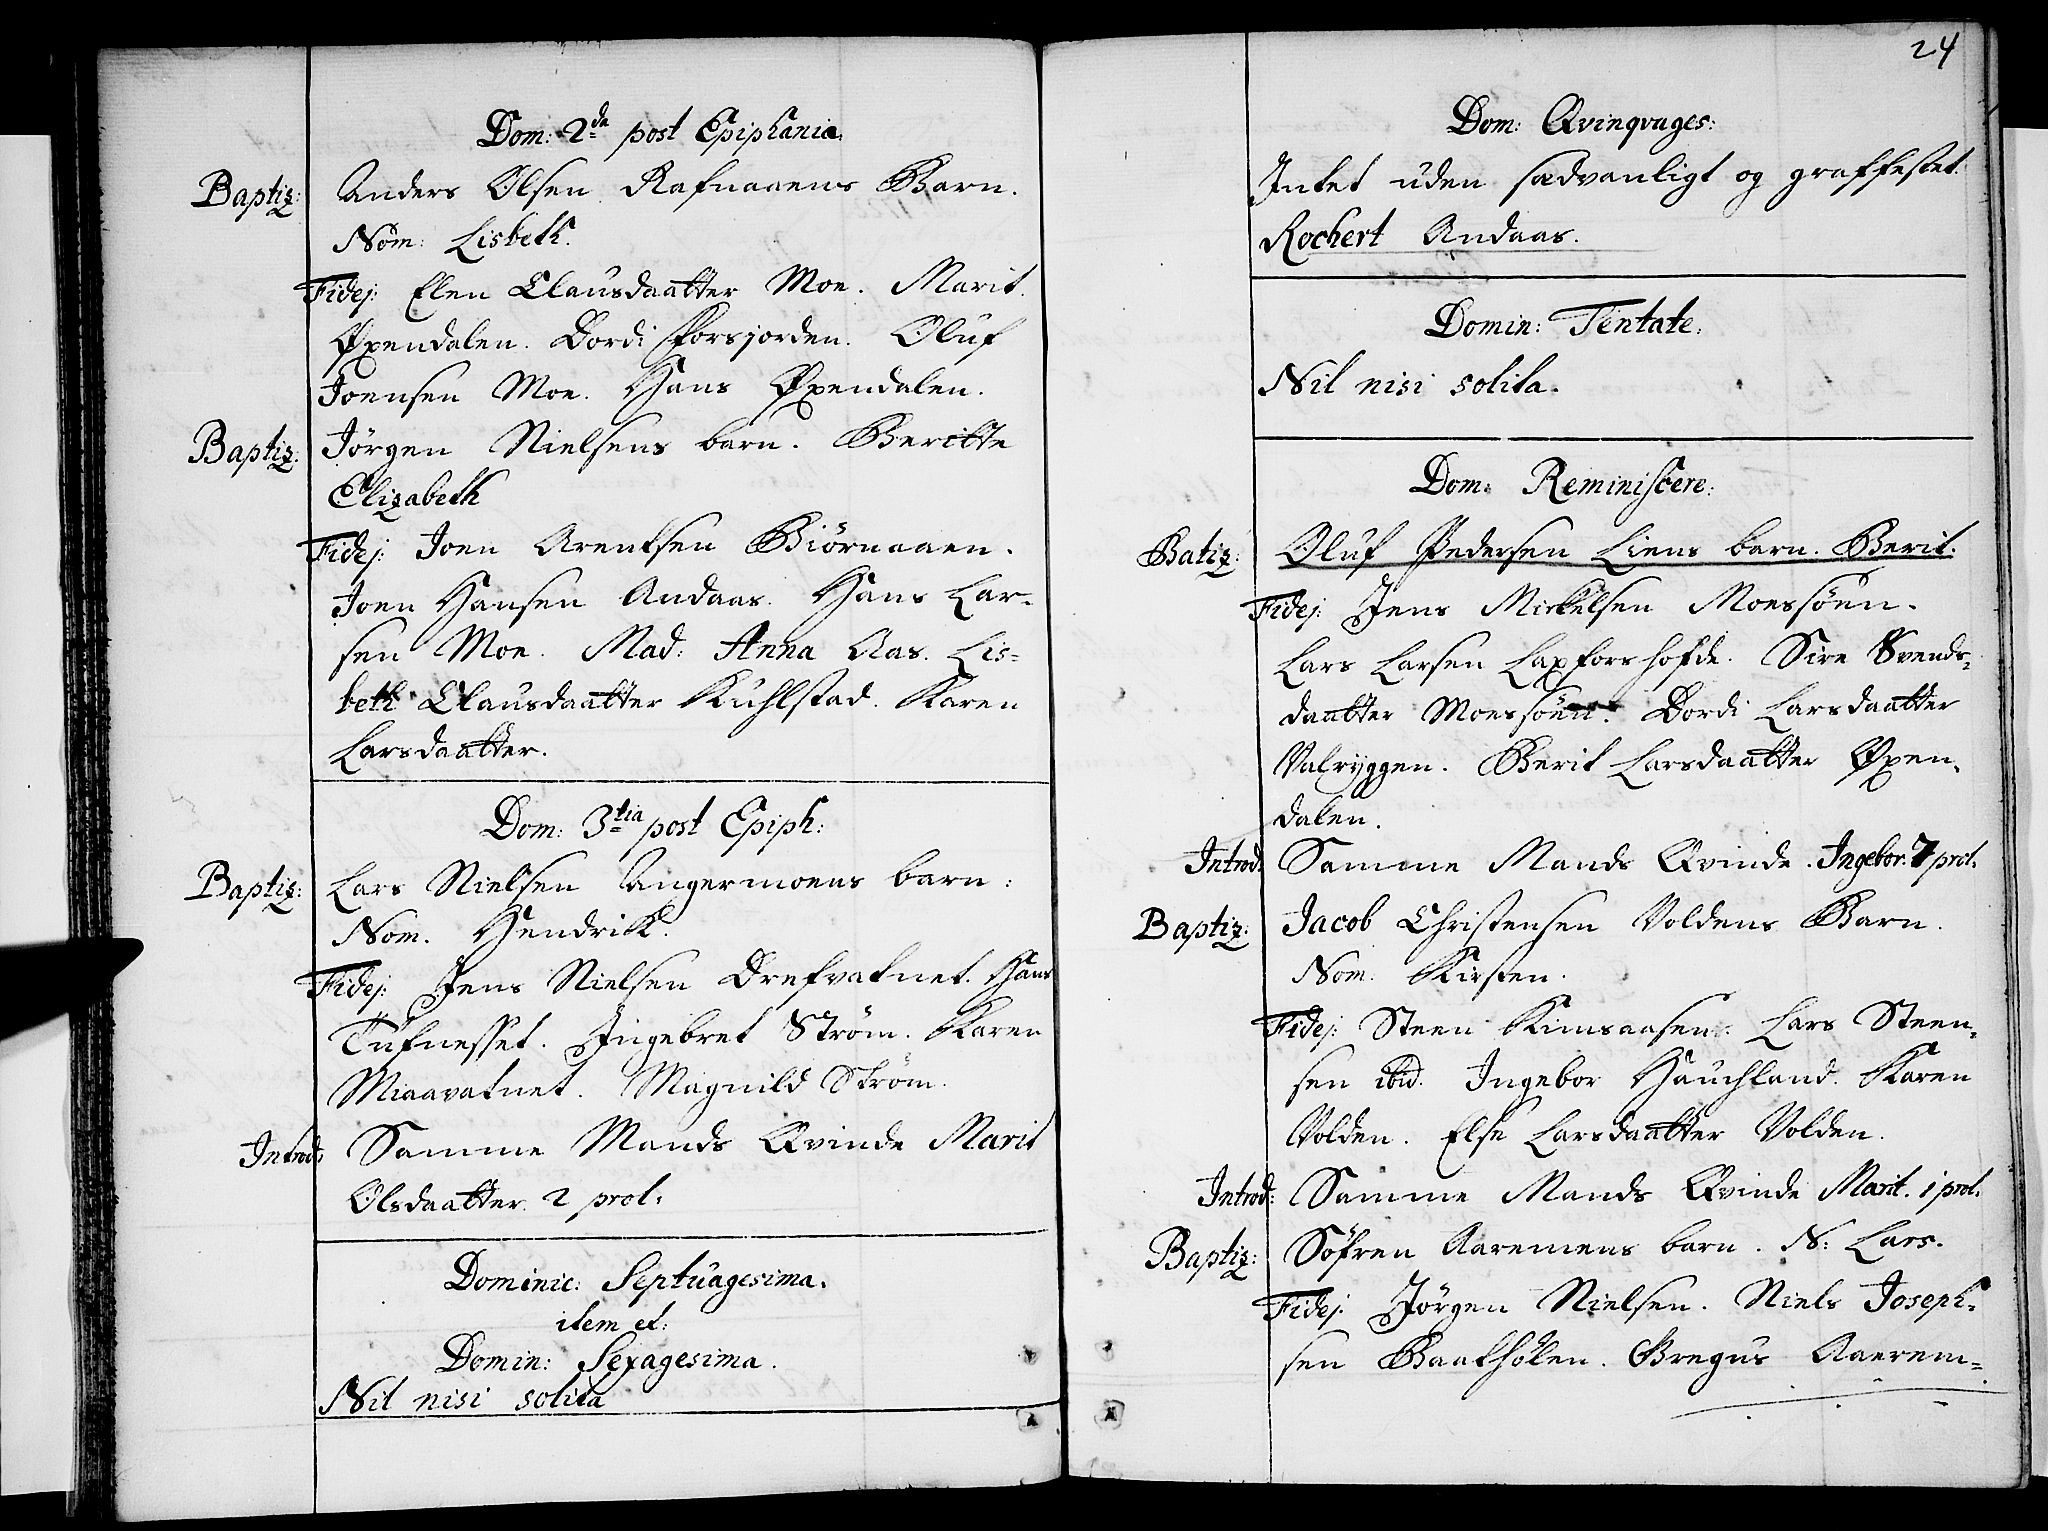 Dom: 2da post Epiphania.
Baptiz: Anders Olsen Rafnaaens Barn.
Nom: Lisbeth.
Fidej: Elen Clausdaatter Moe. Marit
Øxendalen. Dordi Forsjorden. Oluf
Joensen Moe. Hans Øxendalen.
Baptiz: Jörgen Nielsens barn. Beritte
Elizabeth
Fidej: Joen Arentsen Biörnaaen.
Joen Hansen Andaas. Hans Lar-
sen Moe. Mad: Anna Aas. Lis-
beth Clausdaatter Kuhlstad. Karen
Larsdaatter.
Dom: 3tia post Epiph:
Baptiz: Lars Nielsen Angermoens barn:
Nom. Hendrik.
Fidej: Jens Nielsen Drefvatnet. Hans
Tüfnesset. Ingebret Ström. Karen
Miaavatnet. Magnild Ström.
Introd: Samme Mands Qvinde Marit
Olsdaatter. 2 prol.
Dominic: Septuagesima.
item et:
Domin: Sexagesima.
Nil nisi solita
24
Dom: Qvinqvages:
Intet uden sædvanligt og graffestet.
Rochert Andaas.
Domin: Tentate.
Nil nisi solita.
Dom: Reminiscere:
Batiz: Oluf Pedersen Liens barn. Berit.
Fidej: Jens Mickelsen Moessöen.
Lars Larsen Laxforshofde. Sire Svends-
daatter Moessöen. Dordi Larsdaatter
Valryggen. Berit Larsdaatter Øxen-
dalen.
Introd: Samme Mands Qvinde. Ingebor. 7 prol.
Baptiz: Jacob Christensen Voldens Barn.
Nom: Kirsten.
Fidej: Steen Kimsaasen. Lars Steen-
sen ibid. Ingebor Hauchland. Karen
Volden. Else Larsdaatter Volden.
Introd: Samme Mands Qvinde Marit. 1 prol.
Baptiz: Söfren Aaremens barn. N: Lars.
Fidej: Jörgen Nielsen. Niels Joseph-
sen Baathölen. Gregus Aaerem-